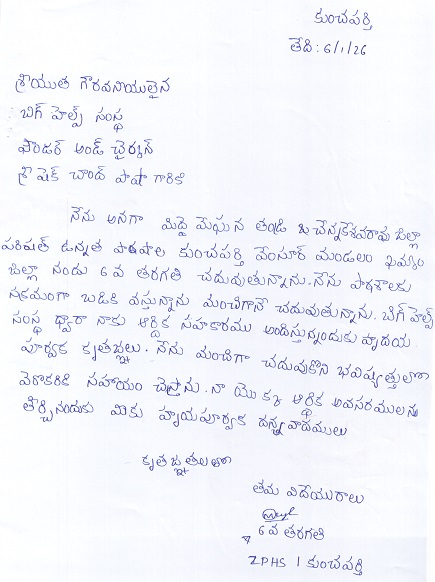 కుంచపర్తి
తేది: 6/1/26
శ్రీయుత గౌరవనీయులైన
బిగ్ హెల్ప్ సంస్థ
ఫౌండర్ అండ్ చైర్మన్
శ్రీ షేక్ చాంద్ పాషా గారికి
నేను అనగా మిద్దె మేఘన తండ్రి చెన్నకేశవరావు జిల్లా
పరిషత్ ఉన్నత పాఠశాల కుంచపర్తి వేంసూర్ మండలం ఖమ్మం
జిల్లా నందు 6వ తరగతి చదువుతున్నాను. నేను పాఠశాలకు
సక్రమంగా బడికి వస్తున్నాను మంచిగానే చదువుతున్నాను. బిగ్ హెల్ప్
సంస్థ ద్వారా నాకు ఆర్థిక సహకారము అందిస్తున్నందుకు హృదయ
పూర్వక కృతజ్ఞతలు. నేను మంచిగా చదువుకొని భవిష్యత్తులో
వేరొకరికి సహాయం చేస్తాను. నా యొక్క ఆర్థిక అవసరములను
తీర్చినందుకు మీకు హృదయపూర్వక ధన్యవాదములు
కృతజ్ఞతలతో
తమ విదేయురాలు
6వ తరగతి
ZPHS | కుంచపర్తి